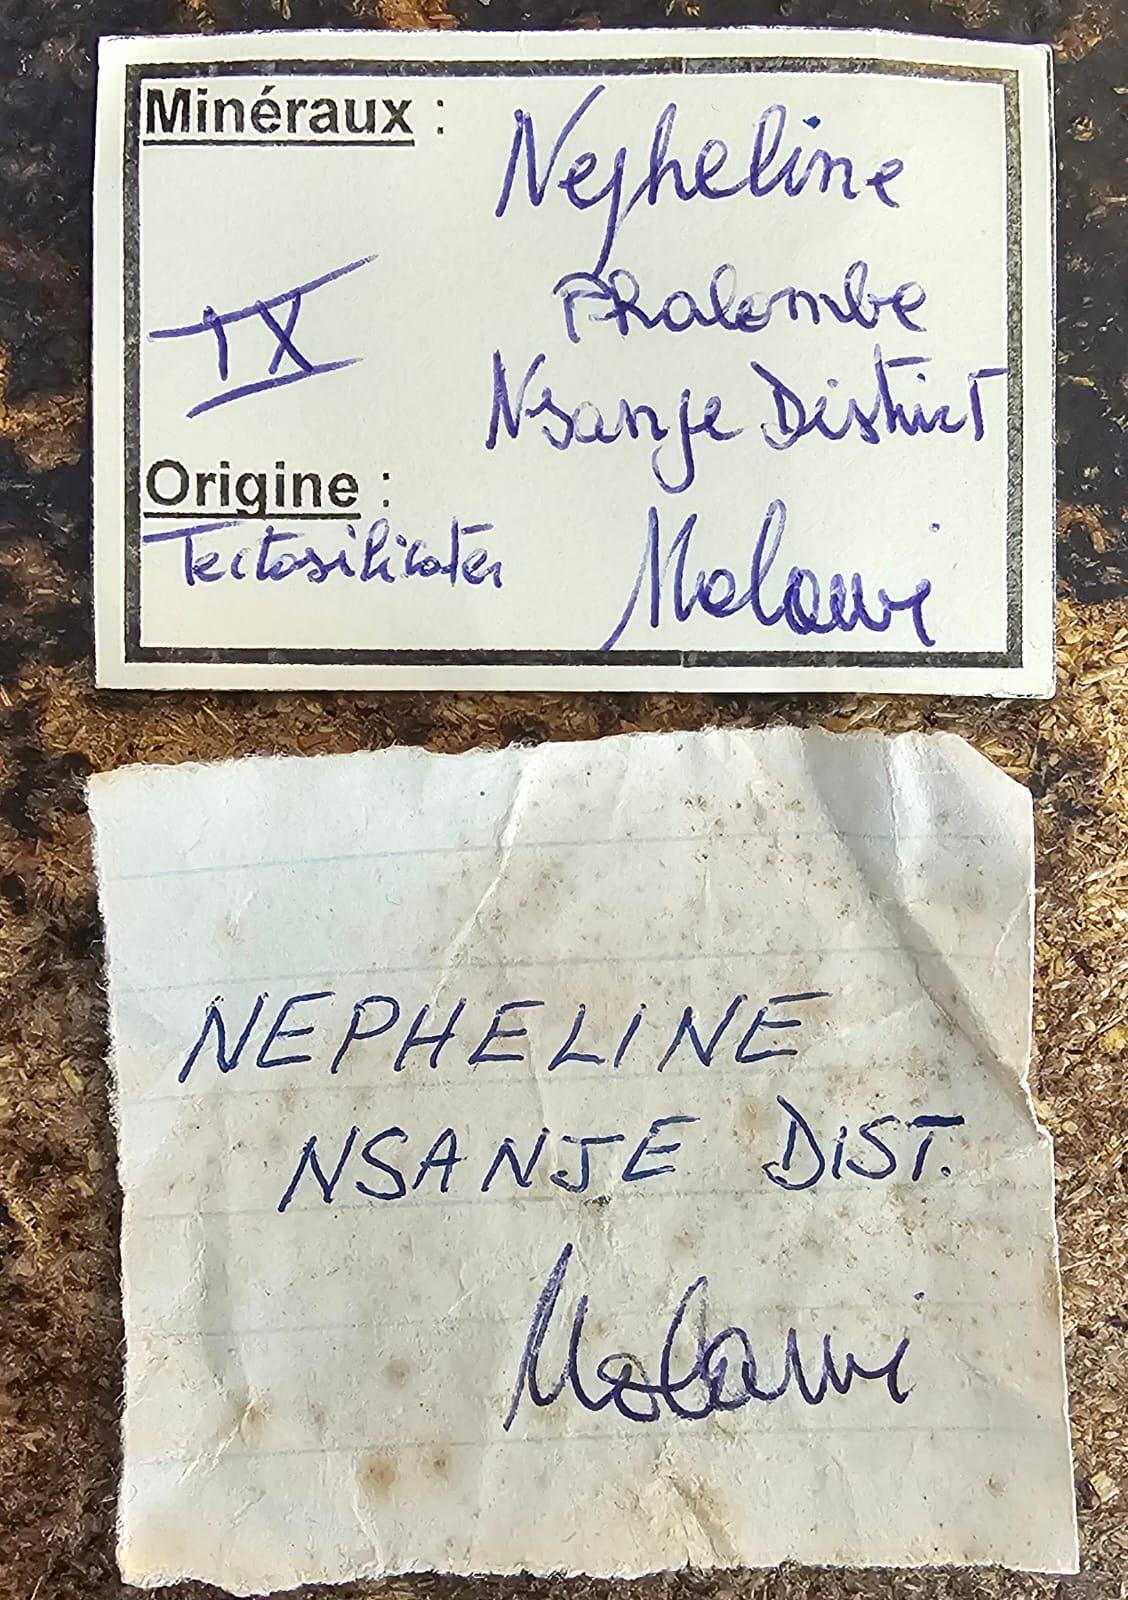 Minéraux :
Nepheline
IX
Phalombe
Nsanje District
Origine :
Tectosilicates
Malawi
NEPHELINE
NSANJE DIST.
Malawi